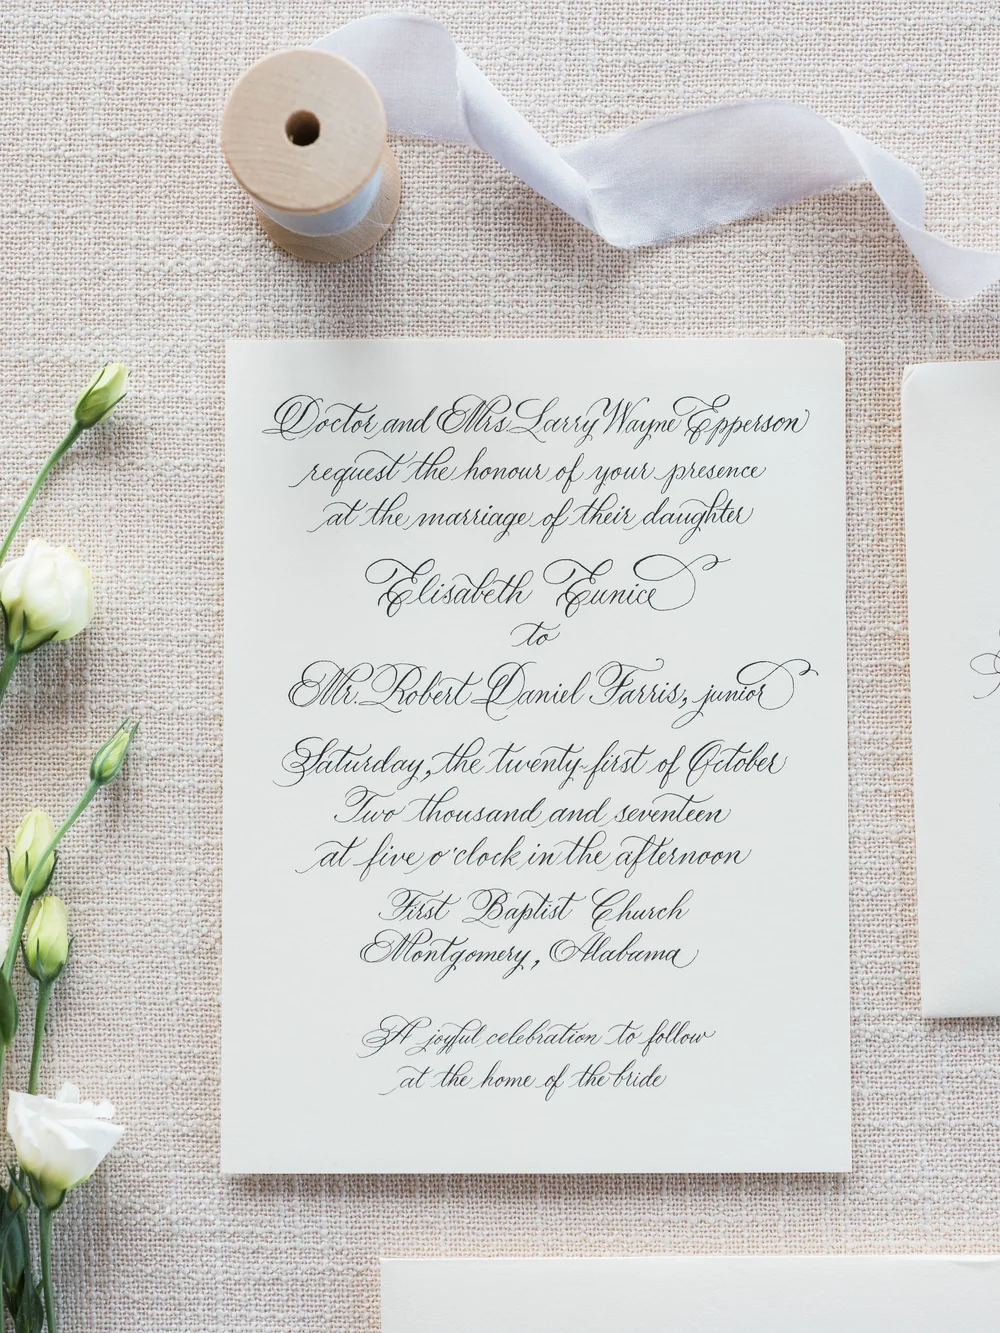 Doctor and Mrs. Larry Wayne Epperson
request the honour of your presence
at the marriage of their daughter
Elisabeth Eunice
to
Mr. Robert Daniel Farris, junior
Saturday, the twenty-first of October
Two thousand and seventeen
at five o'clock in the afternoon
First Baptist Church
Montgomery, Alabama
A joyful celebration to follow
at the home of the bride